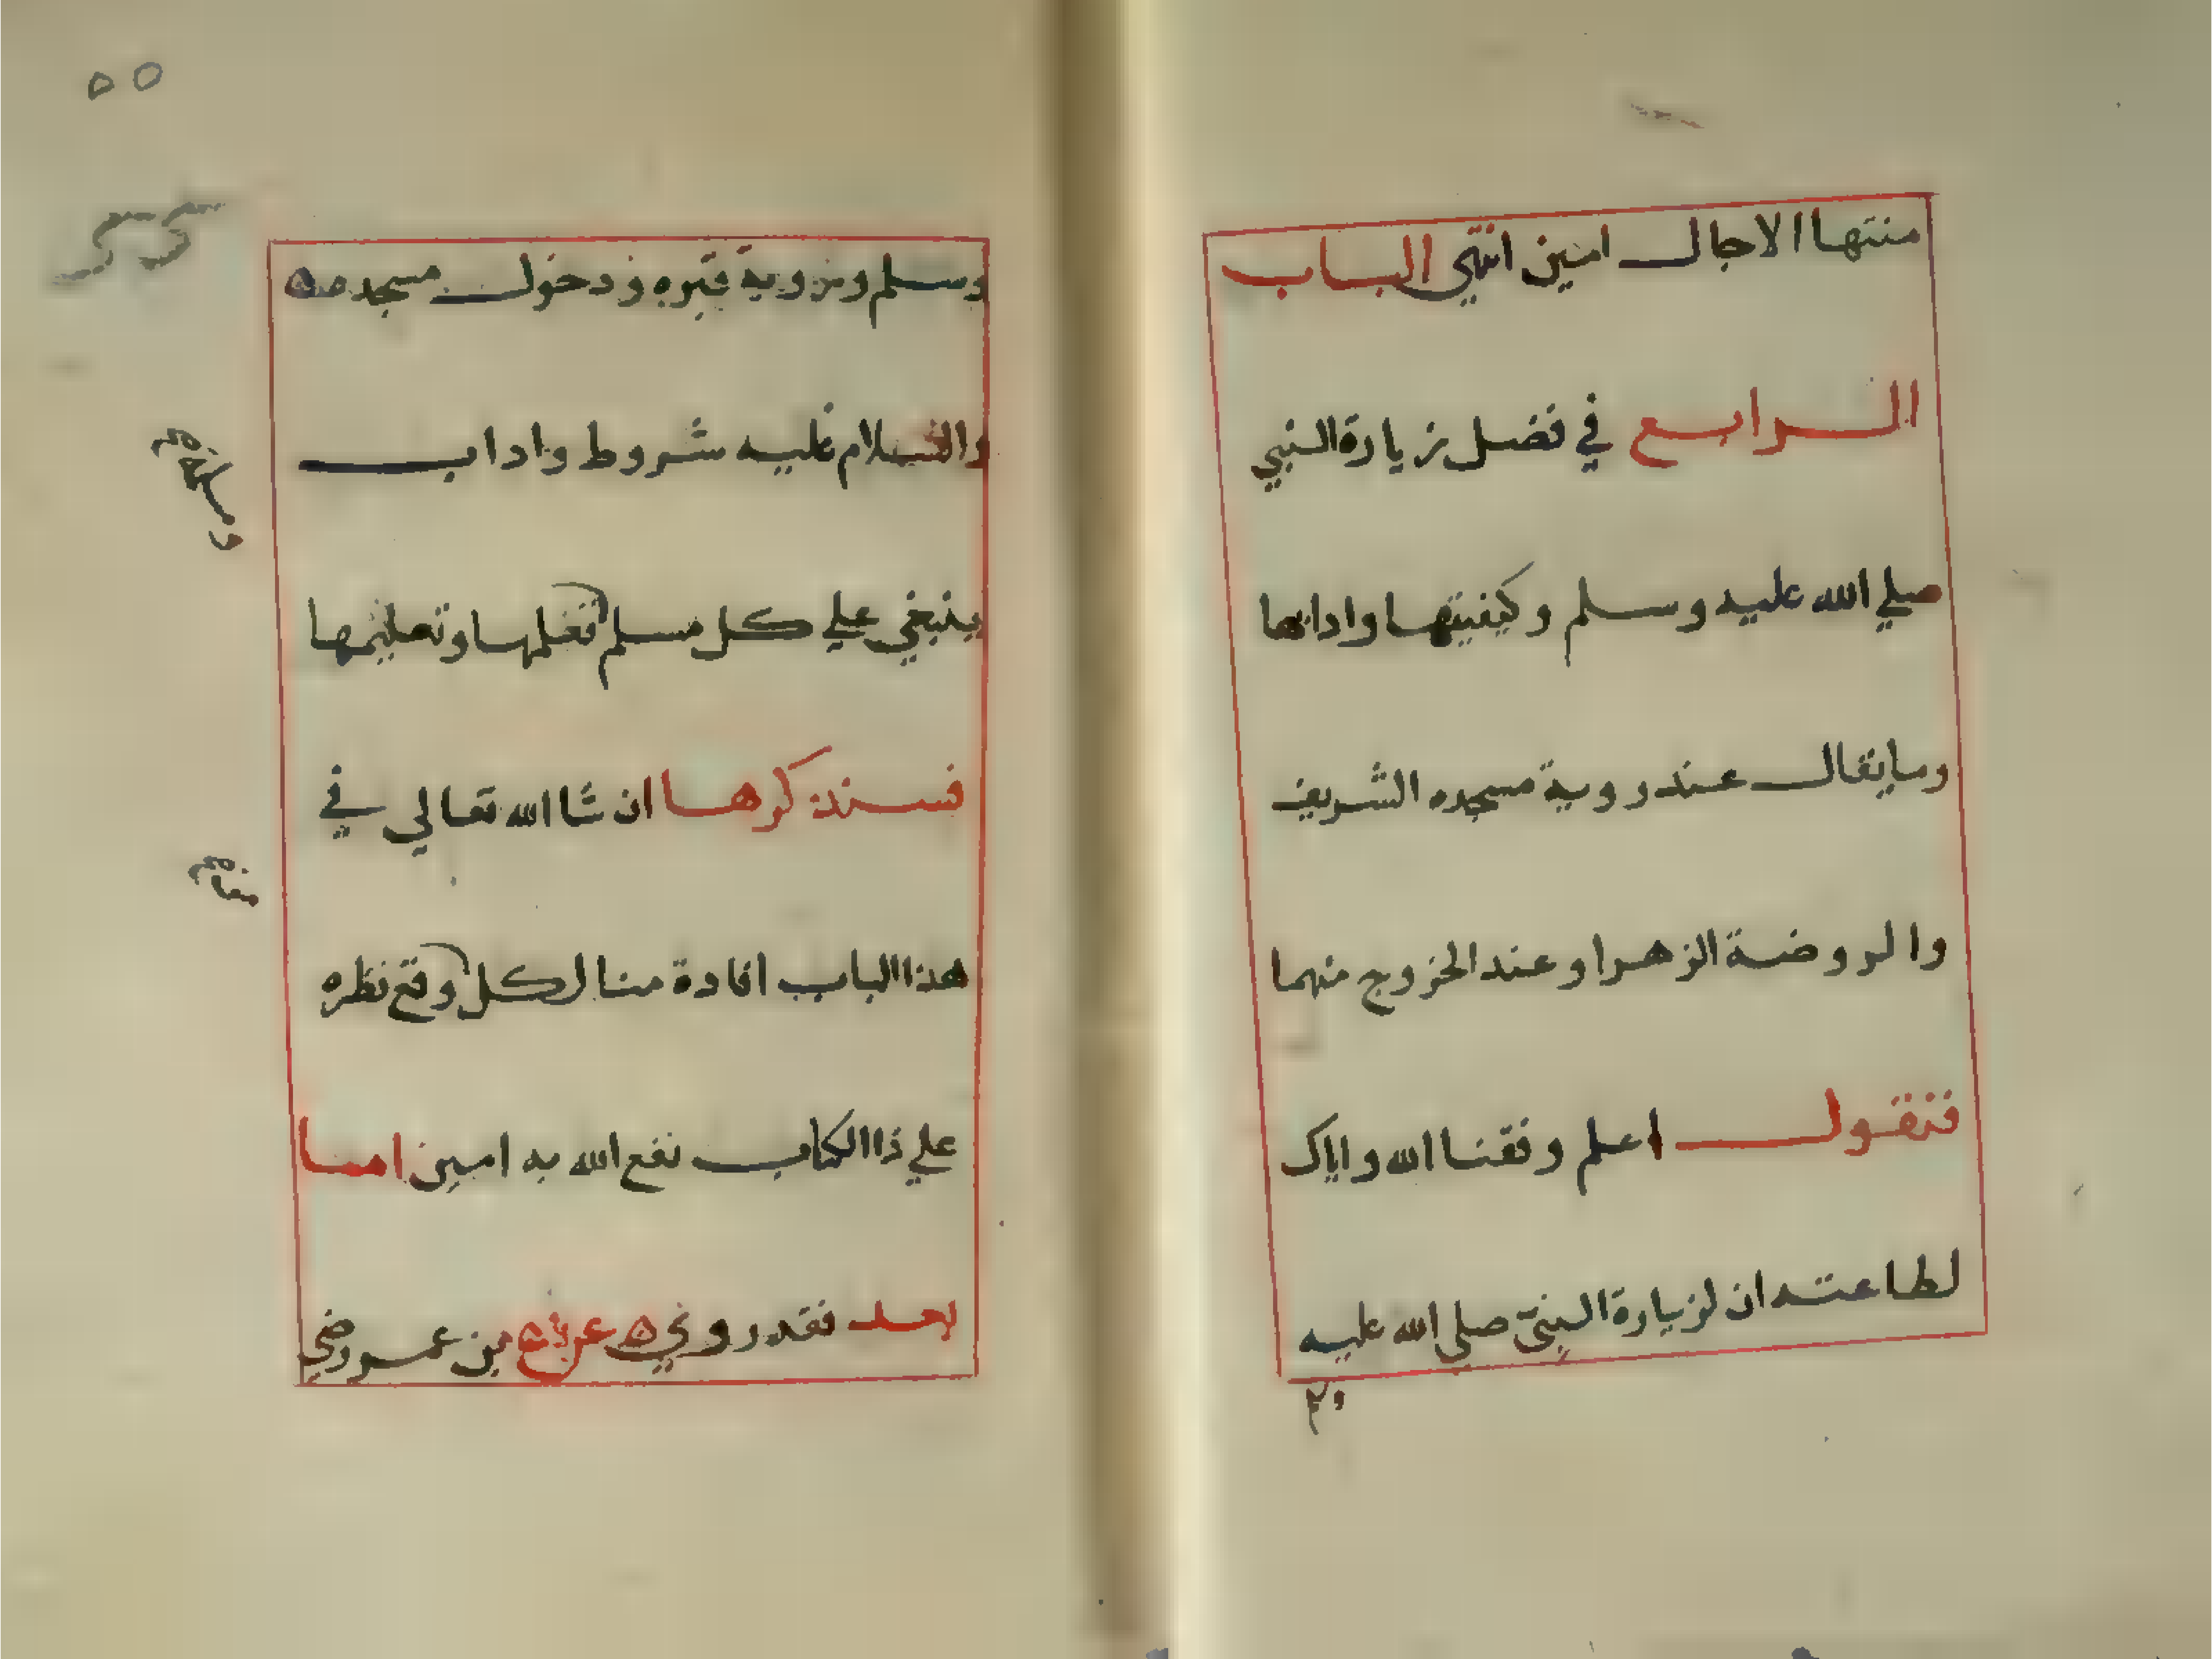 منتها الاجال امين انتهي الباب
الرابع في فضل زيارة النبي
صلي الله عليه وسلم وكيفيتها وادابها
وما يقال عند روية مسجده الشريف
والروضة الزهرا وعند الخروج منهما
فنقول اعلم وفقنا الله واياك
لطاعته ان لزيارة النبي صلي الله عليه
٥٥
وسلم وروية قبره ودخول مسجده
والسلام عليه شروط واداب
ينبغي علي كل مسلم تعلمها وتعليمها
فسنذكرها ان شا الله تعالي في
هذا الباب افادة منا لكل وقع نظره
علي ذا الكتاب نفع الله به امين اما
بعد فقد روي عن نافع بن عمر رضي